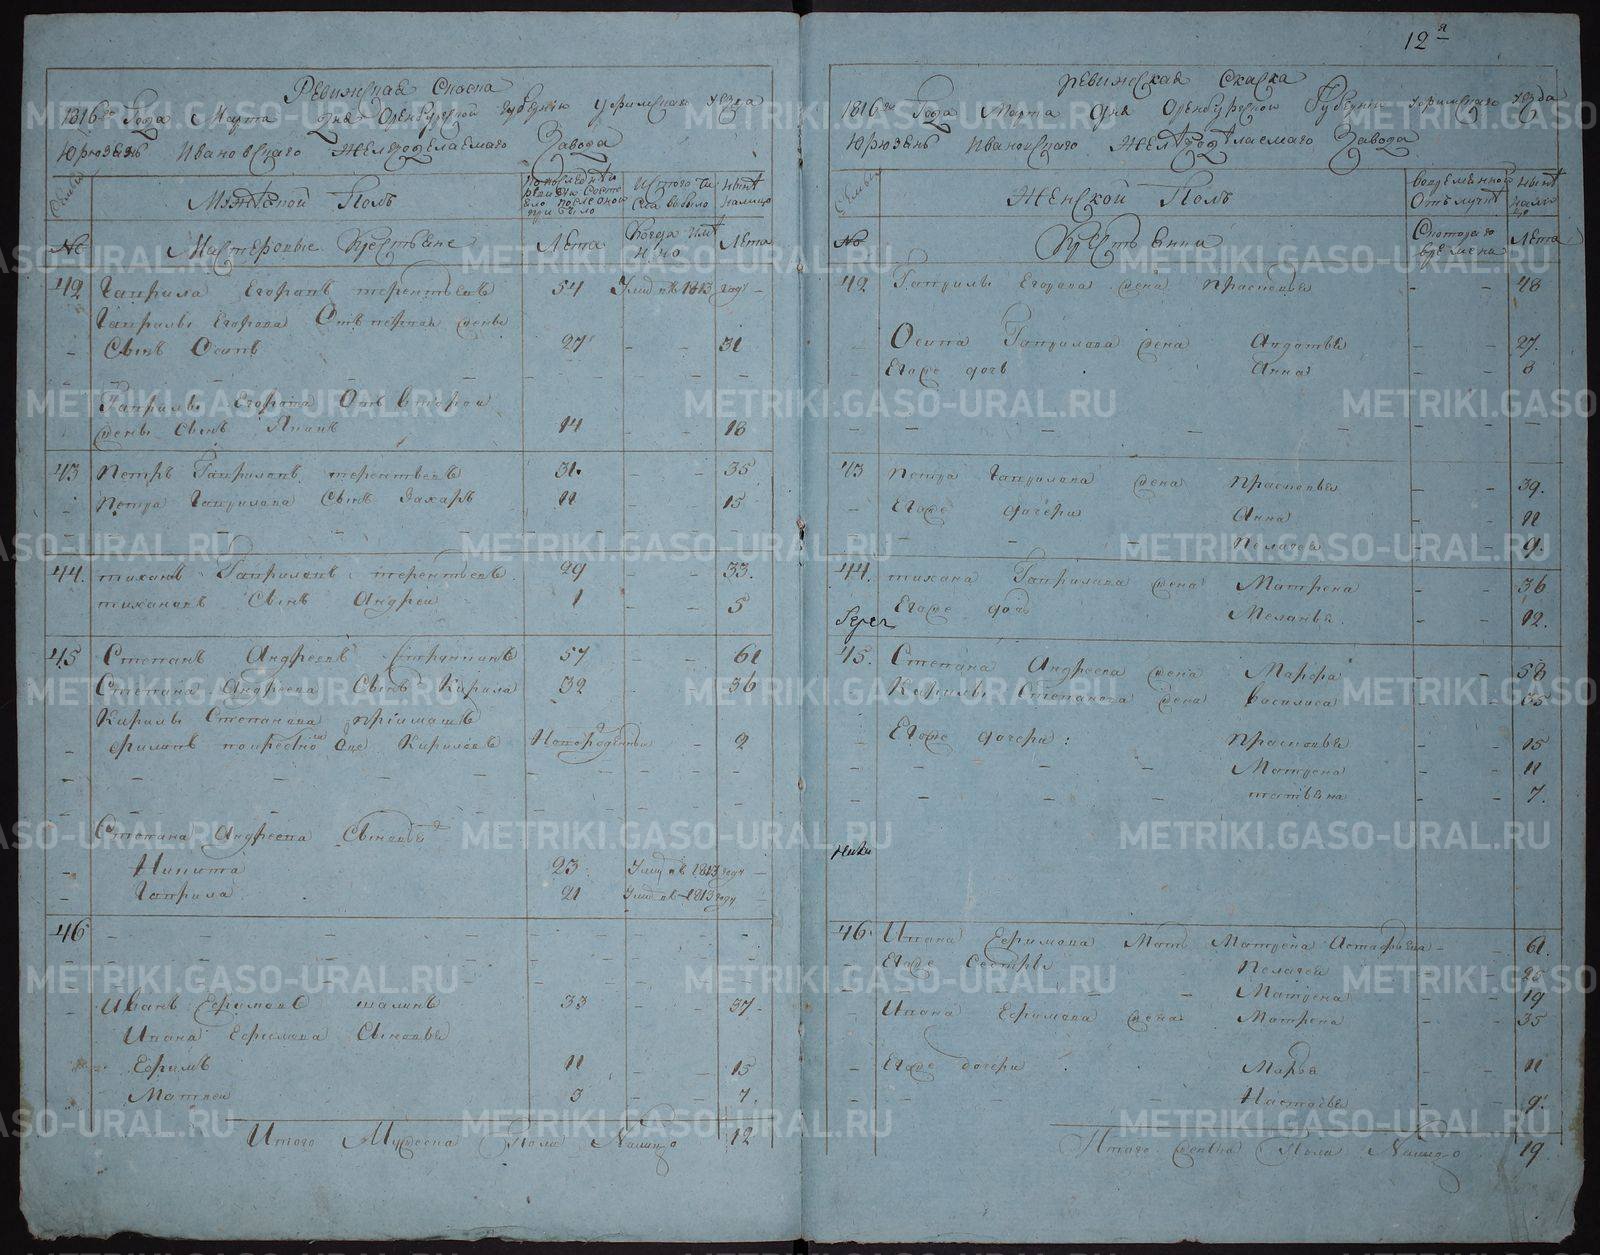 12я
Ревижская Сказка
1816го Года Марта дня Оренбурской Губернии Уфимскаго уезда
Юрюзень Ивановскаго Железоделаемаго Завода
Семьи
Мужеской Полъ
По последней ревизии состояло и после оной прибыло
Из того числа выбыло
Ныне налицо
№
Мастеровые Крестьяне
Лета
Когда имянно
Лета
42 Гаврила Егоровъ терентьевъ 54 Умер въ 1813 году
Гаврилы Егорова Отъ первой жены
Сынъ Осипъ 27 31
Гаврилы Егорова Отъ второй
жены Сынъ Иванъ 14 18
43 Петръ Гавриловъ терентьевъ 31 35
Петра Гаврилова Сынъ Захаръ 11 15
44 тиханъ Гавриловъ терентьевъ 29 33
тихановъ Сынъ Андреи 1 5
45 Степанъ Андреевъ 57 61
Степана Андреева Сынъ Кирила 32 36
Кирилы Степанова пріимашъ
Новорожденныи 2
Степана Андреева Сыновья
Никита 23 Умер въ 1813 году
Гаврила 21 Умер въ 1813 году
46
Иванъ Ефимовъ шалинъ 33 37
Ивана Ефимова Сыновья
Ефимъ 11 15
Матвеи 3 7
Итого Мужеска Пола Налицо 12
Ревижская Сказка
1816го Года Марта дня Оренбурской Губернии Уфимскаго уезда
Юрюзень Ивановскаго Железоделаемаго Завода
Семьи
Женской Полъ
Во временной отлучке
Ныне налицо
№
Крестьянки
С котораго времени
Лета
42 Гаврилы Егорова жена Прасковья 48
Осипа Гаврилова жена Авдотья 27
Егоже дочь Анна 8
43 Петра Гаврилова жена Прасковья 39
Егоже дочери Анна 11
Пелагея 9
44 тихана Гаврилова жена Матрена 36
Егоже дочь Меланья 12
45 Степана Андреева жена Марфа 58
Кирилы Степанова жена василиса 35
Егоже дочери: Прасковья 15
Матрена 11
татьяна 7
46 Ивана Ефимова Мать Матрена Астафьева 61
Егоже Сестры Пелагея 25
Матрена 19
Ивана Ефимова жена Матрена 35
Егоже дочери Марья 11
Настасья 9
Итого Женска Пола Налицо 19
METRIKI.GASO-URAL.RU